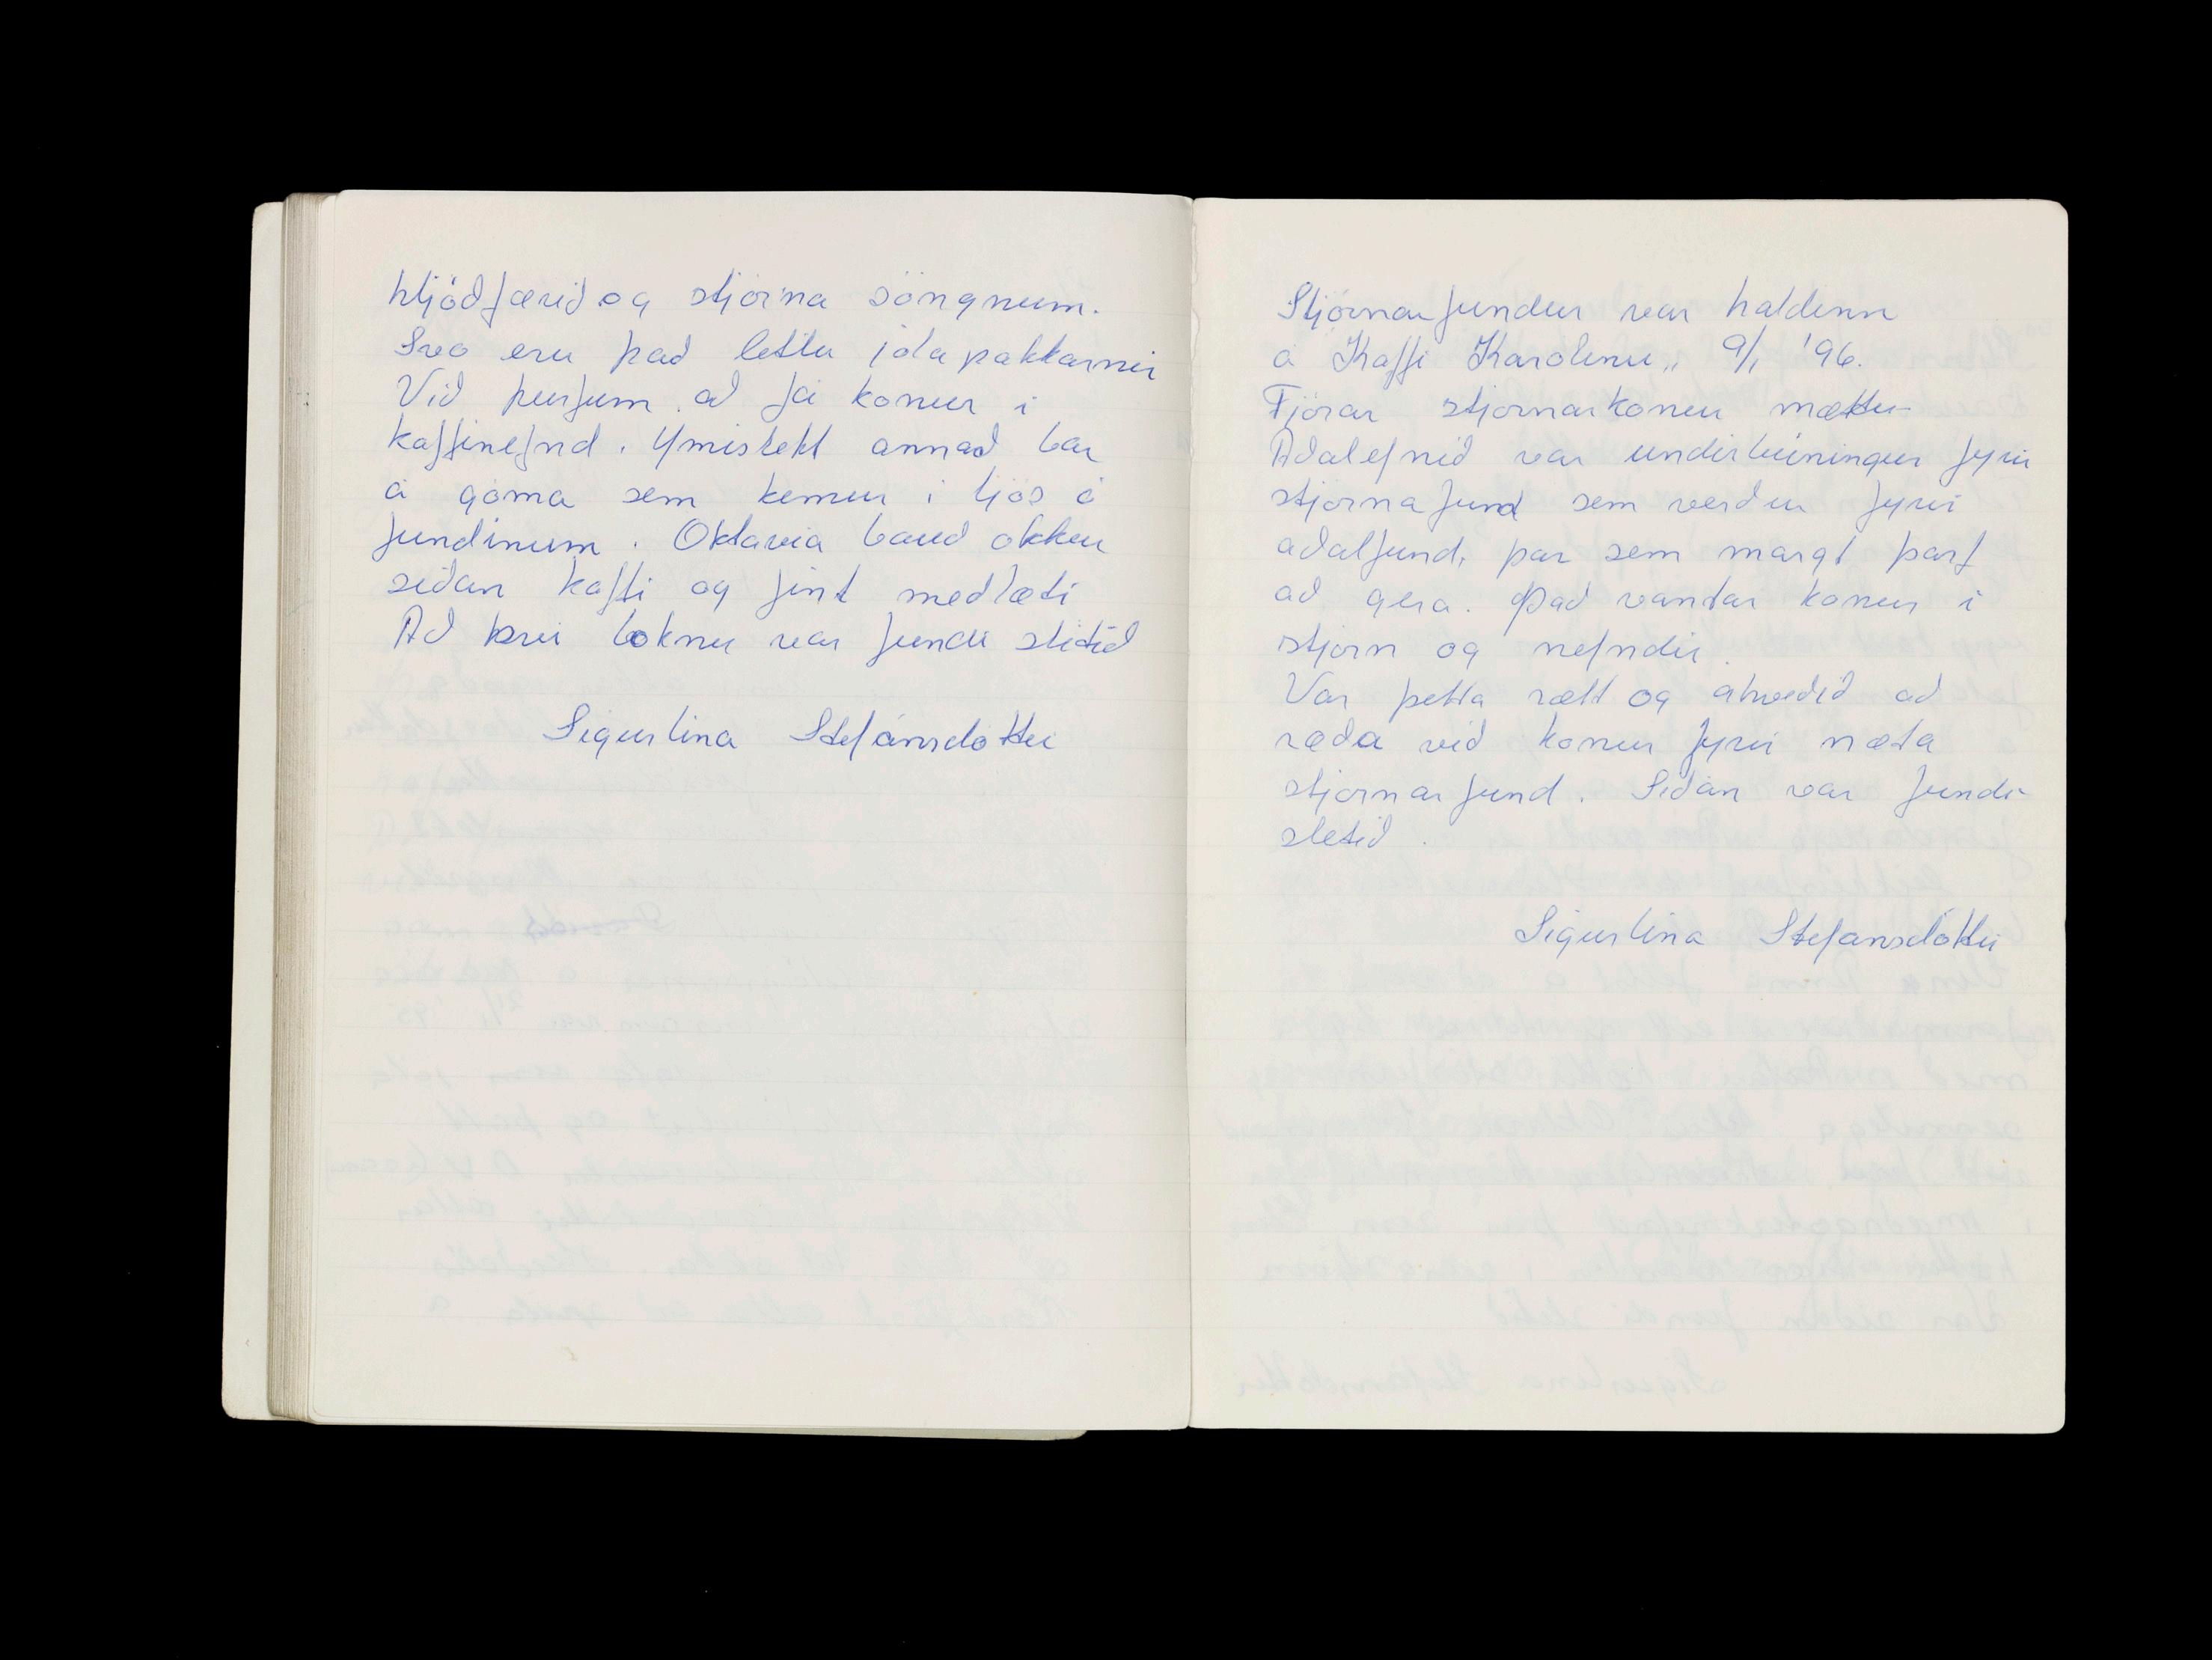 hljóðfærið og stjórna söngnum.
Svo eru það litlu jólapakkarnir
Við þurfum að fá konur í
kaffinefnd. Ýmislekt annað bar
á góma sem kemur í ljós á
fundinum. Oktavia bauð okkur
síðan kaffi og fínt meðlæti
Að því loknu var fundi slitið
Sigurlína Stefánsdóttir
Stjórnarfundur var haldinn
á Kaffi Karolínu„ 9/1 '96.
Fjórar stjórnarkonur mættu
Aðalefnið var undirbúningur fyrir
stjórnafund sem verður fyrir
aðalfund, þar sem margt þarf
að gera. Það vantar konur í
stjórn og nefndir.
Var þetta rætt og ákveðið að
ræða við konur fyrir næsta
stjórnarfund. Síðan var fundi
slitið.
Sigurlína Stefánsdóttir